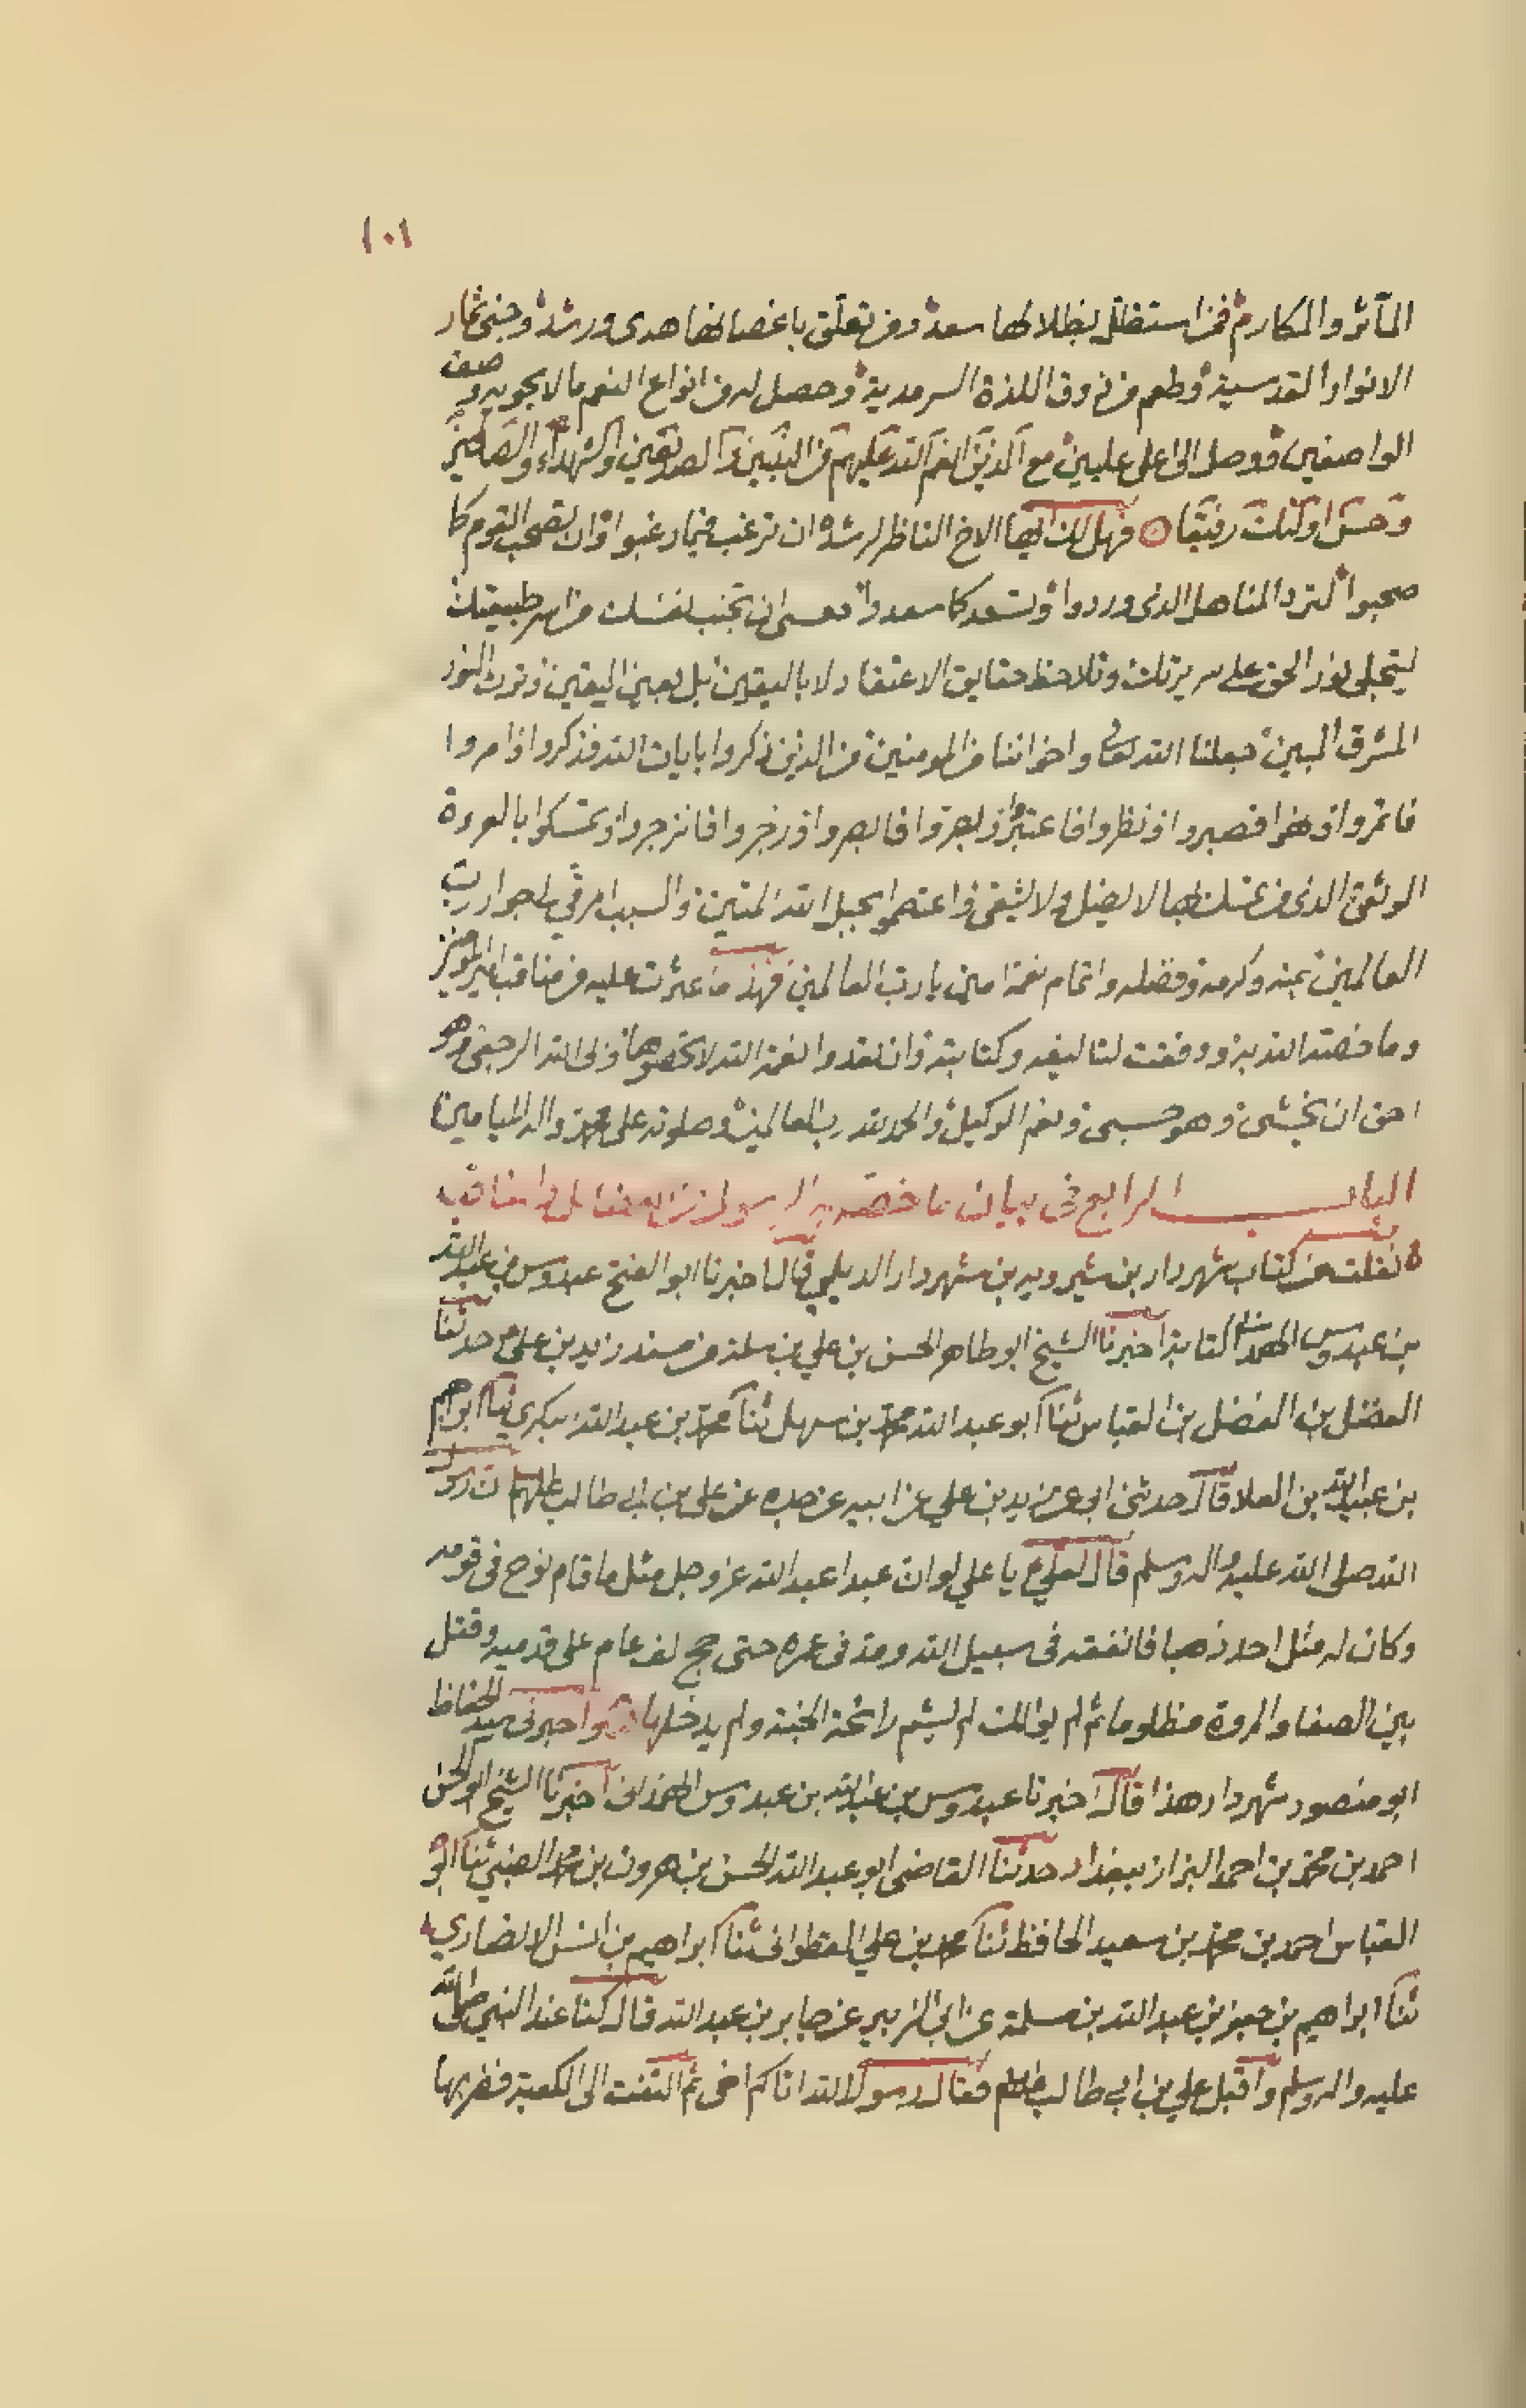 ١٠١
المآثر والمكارم فمن استظل بظلالها سعد ومن تعلق باغصانها هدى ورشد وجنى ثمار
الانوار القدسية وطعم من ذوق اللذة السرمدية وحصل له من انواع النعم ما لا يحويه وصف
الواصفين ووصل الى اعلى عليين مع الذين انعم الله عليهم من النبيين والصديقين والشهداء والصالحين
وحسن اولئك رفيقا فهل لك ايها الاخ الناظر لرشده ان ترغب فيما رغبوا وان تصحب القوم كما
صحبوا لترد المناهل الذى وردوا وتسعد كما سعدوا فعسى ان تجنب نفسك من اسر طبيعتك
ليتجلى نور الحق على سريرتك وتلاحظ حقايق الاعتقاد لا باليقين بل بعين اليقين وترث النور
المشرق المبين جعلنا الله تعالى واخواننا من المومنين من الذين ذكروا بايات الله فذكروا وامروا
فاتمروا ونهوا فصبروا ونظروا فاعتبروا وبصروا فابصروا وزجروا فانزجروا وتمسكوا بالعروة
الوثقى الذى من تمسك بها لا يضل ولا يشقى واعتصموا بحبل الله المتين والسبب المرقي الى جوار رب
العالمين بمنه وكرمه وفضله واتمام نعمه امين يا رب العالمين فهذا ما عثرت عليه من مناقب امير المومنين
وما خصه الله به ووفقت لتاليفه وكتابته وان تعدوا نعمة الله لا تحصوها والى الله الرجعى وهو
احق ان يخشى وهو حسبى ونعم الوكيل والحمد لله رب العالمين وصلوته على محمد واله الميامين
الباب الرابع فى بيان ما خصه به الرسول من الفضائل والمناقب
نقلت من كتاب شهردار بن شيرويه بن شهردار الديلمي قال اخبرنا ابو الفتح عبدوس بن عبد الله
بن عبدوس الهمداني كتابة اخبرنا الشيخ ابو طاهر الحسن بن علي بن سلمة من مسند زيد بن علي حدثنا
الفضل بن الفضل بن العباس ثنا ابو عبد الله محمد بن سهل ثنا محمد بن عبد الله البكري ثنا ابراهيم
بن عبيد الله بن العلا قال حدثنى ابى عن زيد بن علي عن ابيه عن جده عن على بن ابى طالب عليهم ان رسول
الله صلى الله عليه واله وسلم قال لعلي يا علي لو ان عبدا عبد الله عز وجل مثل ما قام نوح فى قومه
وكان له مثل احد ذهبا فانفقه فى سبيل الله ومد فى عمره حتى حج الف عام على قدميه وقتل
بين الصفا والمروة مظلوما ثم لم يوالك لم يشم رائحة الجنة ولم يدخلها واخبرنى سيد الحفاظ
ابو منصور شهردار هذا قال اخبرنا عبدوس بن عبد الله بن عبدوس الهمدانى اخبرنا الشيخ ابو الحسن
احمد بن محمد بن احمد البزاز ببغداد حدثنا القاضى ابو عبد الله الحسن بن هرون بن محمد الضبي ثنا ابو
العباس احمد بن محمد بن سعيد الحافظ ثنا محمد بن علي القطوانى ثنا ابراهيم بن انس الانصاري
ثنا ابراهيم بن جعفر بن عبد الله بن مسلمة عن ابى الزبير عن جابر بن عبد الله قال كنا عند النبي صلى الله
عليه واله وسلم واقبل علي بن ابى طالب فقال رسول الله اتاكم اخى ثم التفت الى الكعبة فضربها